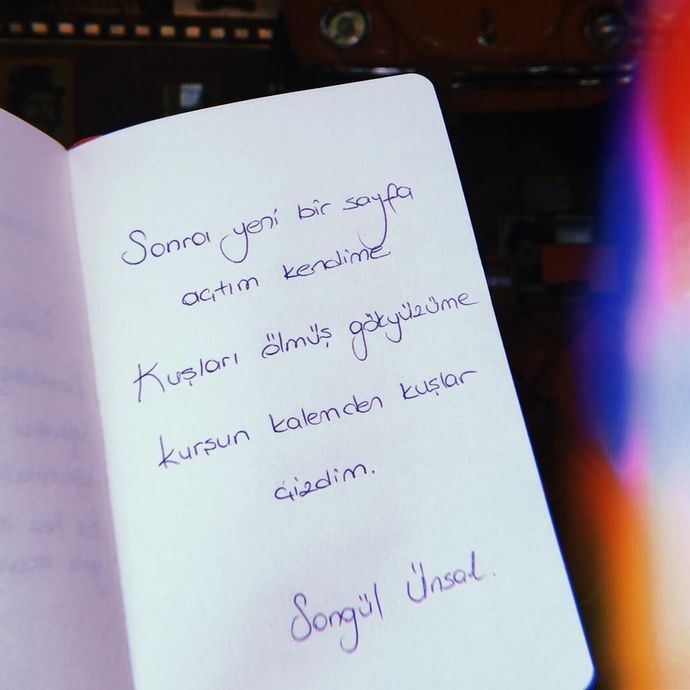 Sonra yeni bir sayfa
açıtım kendime.
Kuşları ölmüş gökyüzüme
kurşun kalemden kuşlar
çizdim.
Songül Ünsal.